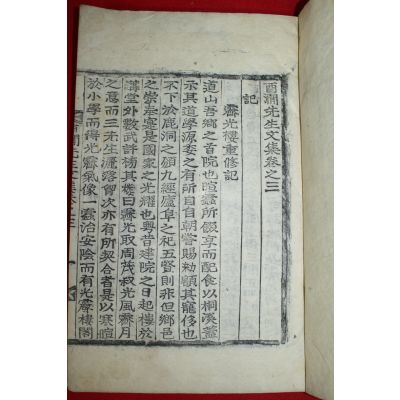 酉澗先生文集卷之三
記
霽光樓重修記
道山吾鄕之首院也暄蠹所餟享而配食以桐溪蓋
示其道學源委之有所自自朝嘗賜勅額其寵侈也
不下於鹿洞之顧九經廬阜之祀五賢則非但鄕邑
之崇奉寔是國家之光耀也粤昔建院之日起樓於
講堂外數武許楊其樓曰霽光取周茂叔光風霽月
之意而三先生灑落胷次亦有所契合者是以寒暄
於小學而得光霽氣像一蠹治安陰而有光霽樓閣